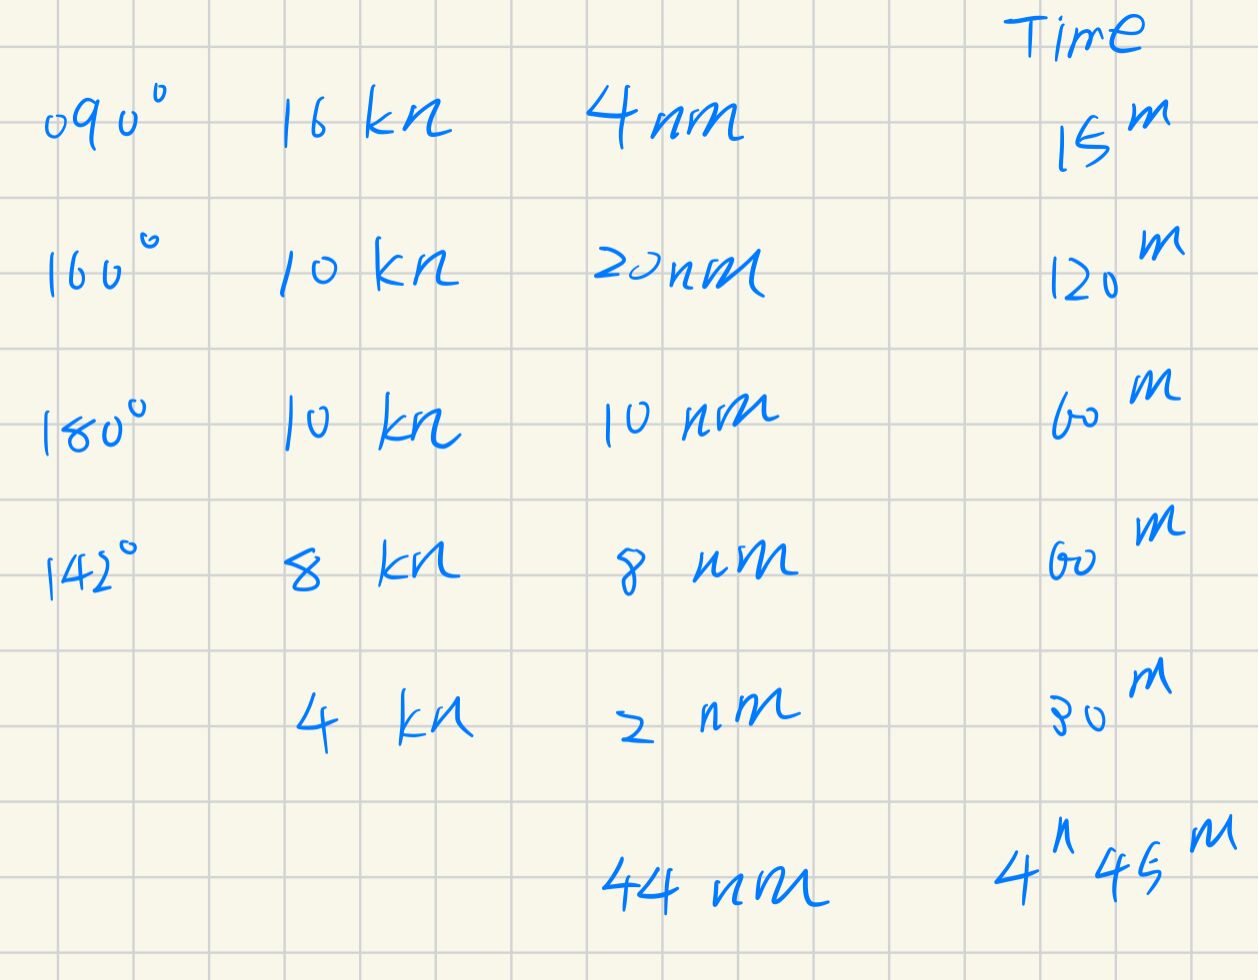 Time
090° 16 kn 4 nm 15 m
160° 10 kn 20 nm 120 m
180° 10 kn 10 nm 60 m
142° 8 kn 8 nm 60 m
4 kn 2 nm 30 m
44 nm 4 h 45 m